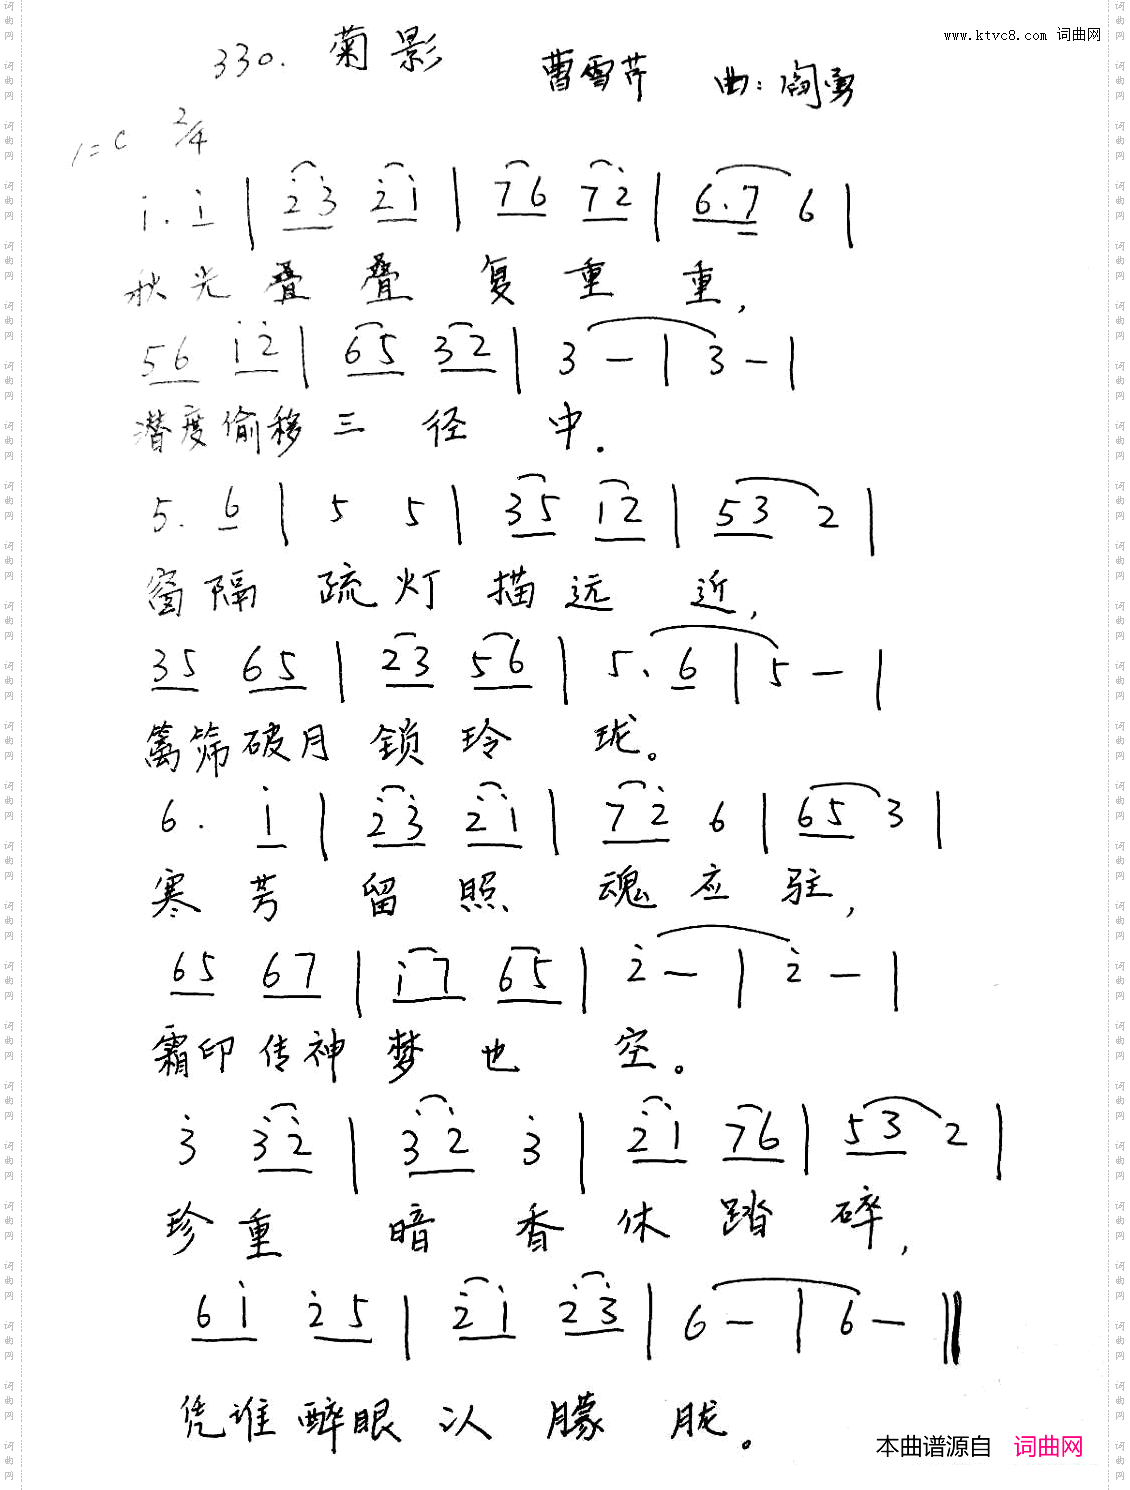 www.ktvc8.com 词曲网
330. 菊影
曹雪芹 曲：阎勇
1=C 2/4
i. i | 2̇3̇ 2̇i | 76 72̇ | 6.7 6 |
秋光叠叠复重重，
56 i2̇ | 65 32 | 3 — | 3 — |
潜度偷移三径中。
5. 6 | 5 5 | 35 12 | 53 2 |
窗隔疏灯描远近，
35 65 | 23 56 | 5. 6 | 5 — |
篱筛破月锁玲珑。
6. i | 2̇3̇ 2̇i | 72̇ 6 | 65 3 |
寒芳留照魂应驻，
65 67 | i7 65 | 2̇ — | 2̇ — |
霜印传神梦也空。
3̇ 3̇2̇ | 3̇2̇ 3̇ | 2̇i 76 | 53 2 |
珍重暗香休踏碎，
6i 2̇5 | 2̇i 2̇3̇ | 6 — | 6 — ‖
凭谁醉眼认朦胧。
本曲谱源自 词曲网